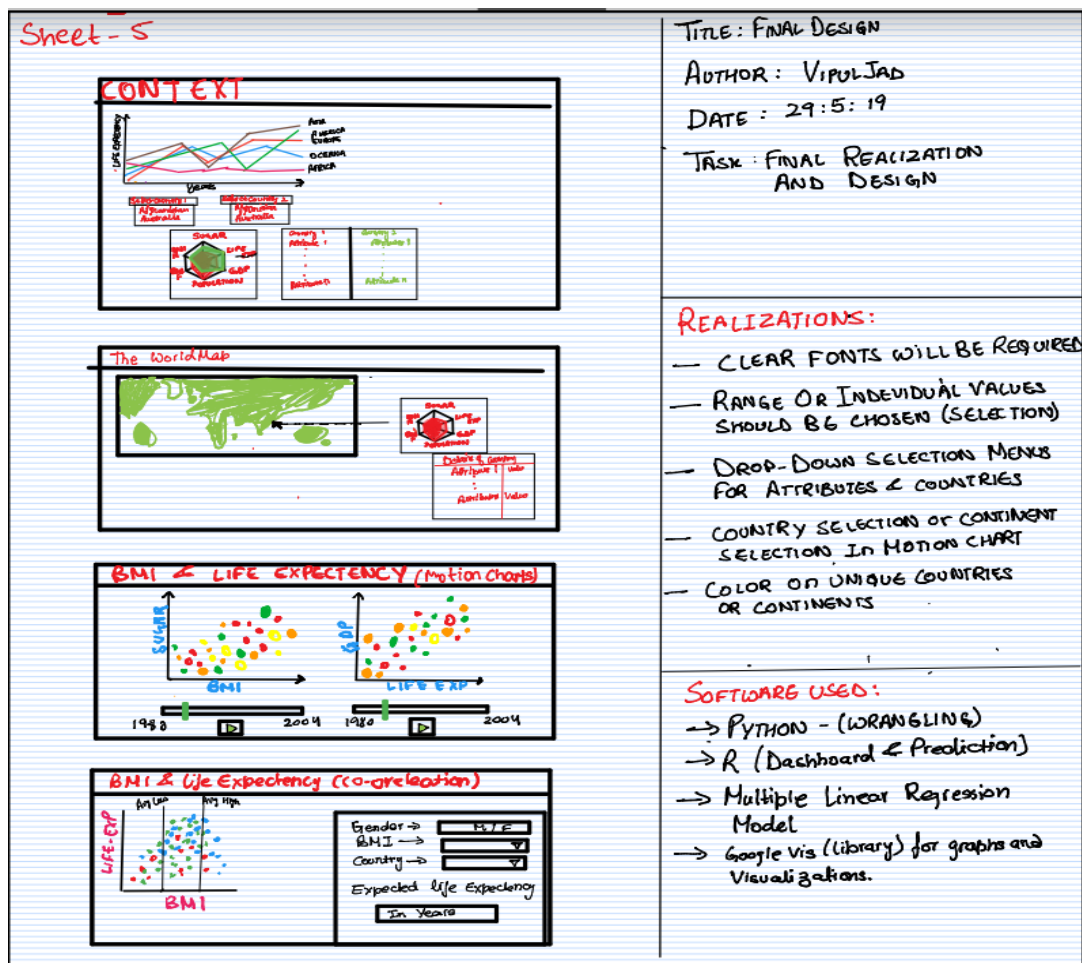 Sheet - 5
CONTEXT
LIFE EXPECTENCY
ASIA
AMERICA
EUROPE
OCEANIA
AFRICA
Years
Select Country 1
Afghanistan
Australia
Select Country 2
Afghanistan
Australia
SUGAR
LIFE
GDP
POPULATION
Country 1
Attribute 1
Attribute n
Country 2
Attribute 1
Attribute n
The World Map
SUGAR
LIFE EXP
GDP
POPULATION
Details of Country
Attribute 1 Value
Attribute n Value
BMI & LIFE EXPECTENCY (Motion Charts)
SUGAR
BMI
1980 2004
GDP
LIFE EXP
1980 2004
BMI & Life Expectency (co-orelation)
Avg Low
Avg High
LIFE-EXP
BMI
Gender → M/F
BMI →
Country →
Expected life Expectency
In Years
TITLE : FINAL DESIGN
AUTHOR : VIPUL JAD
DATE : 29:5:19
TASK : FINAL REALIZATION
AND DESIGN
REALIZATIONS:
— CLEAR FONTS WILL BE REQUIRED
— RANGE OR INDEVIDUAL VALUES
SHOULD BE CHOSEN (SELECTION)
— DROP-DOWN SELECTION MENUS
FOR ATTRIBUTES & COUNTRIES
— COUNTRY SELECTION or CONTINENT
SELECTION In MOTION CHART
— COLOR on UNIQUE COUNTRIES
OR CONTINENTS
SOFTWARE USED:
→ PYTHON - (WRANGLING)
→ R (Dashboard & Prediction)
→ Multiple Linear Regression
Model
→ Google Vis (library) for graphs and
Visualizations.